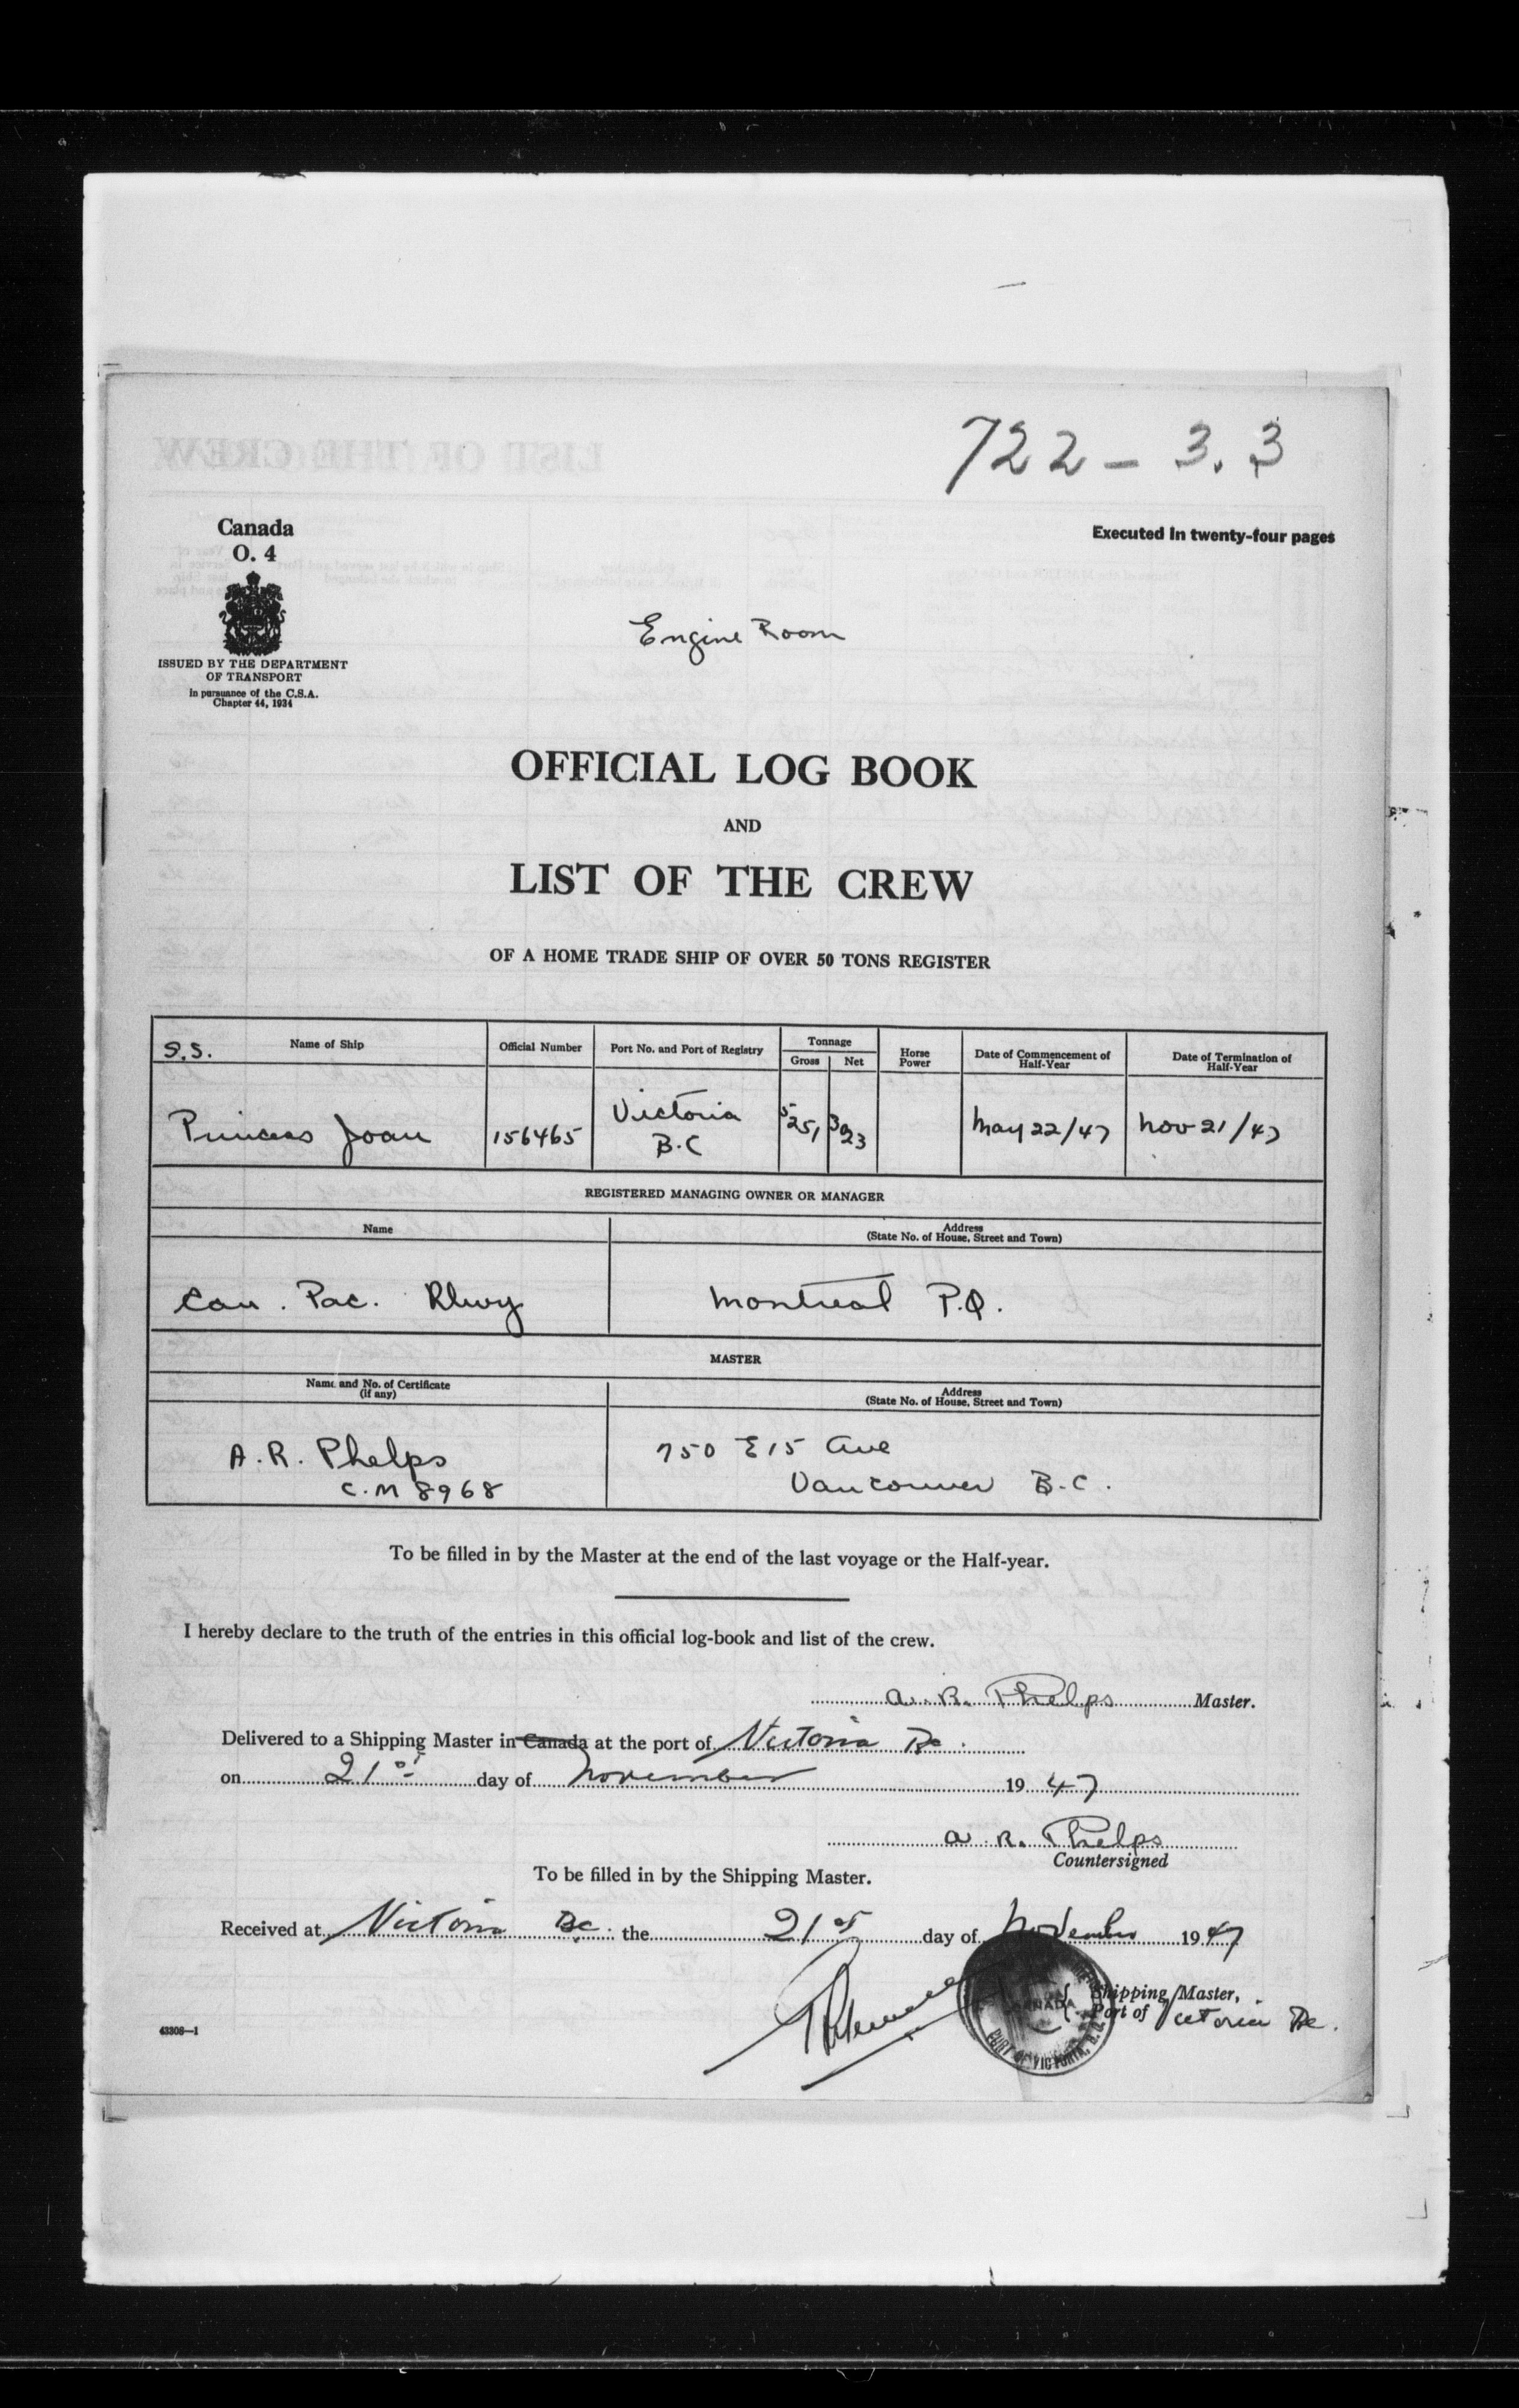 722 - 3.3
Canada
O. 4
Executed in twenty-four pages
Engine Room
ISSUED BY THE DEPARTMENT
OF TRANSPORT
in pursuance of the C.S.A.
Chapter 44, 1934
OFFICIAL LOG BOOK
AND
LIST OF THE CREW
OF A HOME TRADE SHIP OF OVER 50 TONS REGISTER
S.S. Name of Ship Official Number Port No. and Port of Registry Tonnage Gross Net Horse Power Date of Commencement of Half-Year Date of Termination of Half-Year
Princess Joan 156465 Victoria B.C 5251 3023 May 22/47 Nov 21/47
REGISTERED MANAGING OWNER OR MANAGER
Name Address
(State No. of House, Street and Town)
Can. Pac. Rlwy Montreal P.Q.
MASTER
Name and No. of Certificate
(if any)
Address
(State No. of House, Street and Town)
A.R. Phelps 750 E 15 Ave
C.M 8968 Vancouver B.C.
To be filled in by the Master at the end of the last voyage or the Half-year.
I hereby declare to the truth of the entries in this official log-book and list of the crew.
A. R. Phelps Master.
Delivered to a Shipping Master in Canada at the port of Victoria Bc.
on 21st day of November 1947
A. R. Phelps
Countersigned
To be filled in by the Shipping Master.
Received at Victoria Bc. the 21st day of November 1947
Shipping Master,
Port of Victoria Bc.
CANADA
PORT OF VICTORIA, B.C.
43308—1